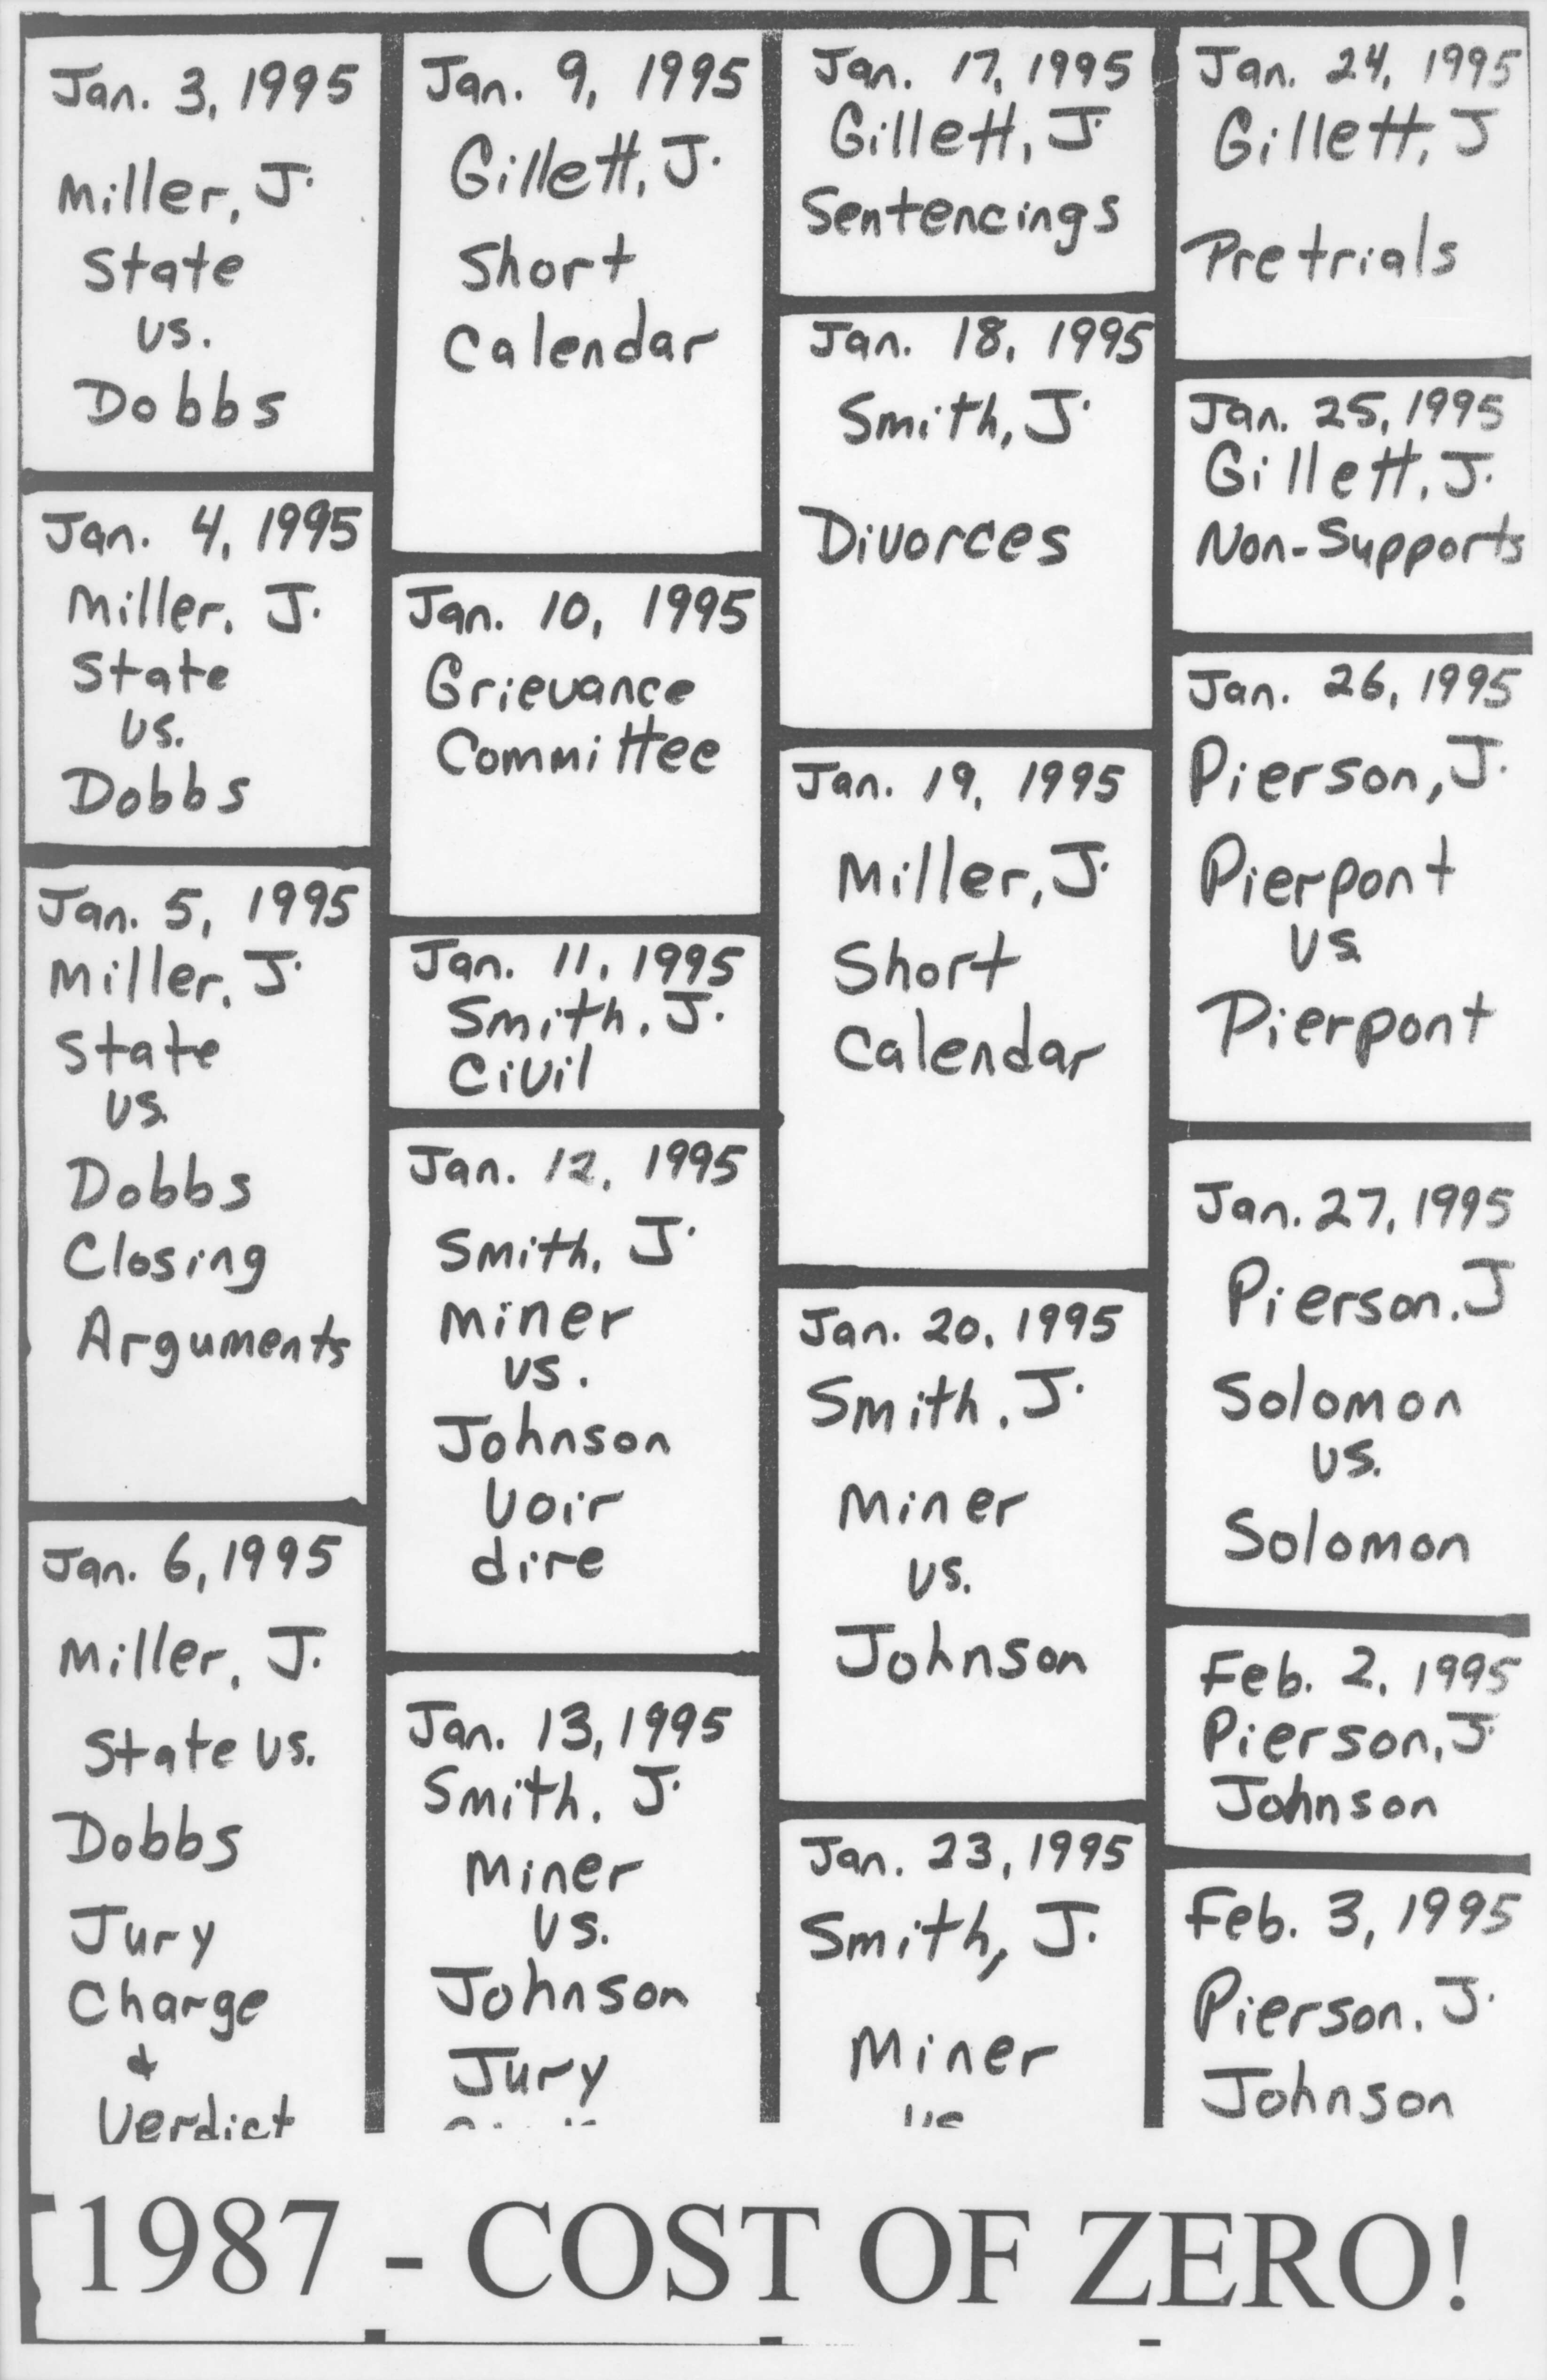 Jan. 3, 1995
Miller, J.
State
vs.
Dobbs
Jan. 4, 1995
Miller, J.
State
vs.
Dobbs
Jan. 5, 1995
Miller, J.
State
vs.
Dobbs
Closing
Arguments
Jan. 6, 1995
Miller, J.
State vs.
Dobbs
Jury
Charge
&
Verdict
Jan. 9, 1995
Gillett, J.
Short
Calendar
Jan. 10, 1995
Grievance
Committee
Jan. 11, 1995
Smith, J.
Civil
Jan. 12, 1995
Smith, J.
Miner
vs.
Johnson
Voir
dire
Jan. 13, 1995
Smith, J.
Miner
vs.
Johnson
Jury
Jan. 17, 1995
Gillett, J.
Sentencings
Jan. 18, 1995
Smith, J.
Divorces
Jan. 19, 1995
Miller, J.
Short
Calendar
Jan. 20, 1995
Smith, J.
Miner
vs.
Johnson
Jan. 23, 1995
Smith, J.
Miner
vs
Jan. 24, 1995
Gillett, J
Pretrials
Jan. 25, 1995
Gillett, J.
Non-Supports
Jan. 26, 1995
Pierson, J.
Pierpont
vs.
Pierpont
Jan. 27, 1995
Pierson, J
Solomon
vs.
Solomon
Feb. 2, 1995
Pierson, J.
Johnson
Feb. 3, 1995
Pierson, J.
Johnson
1987 - COST OF ZERO!